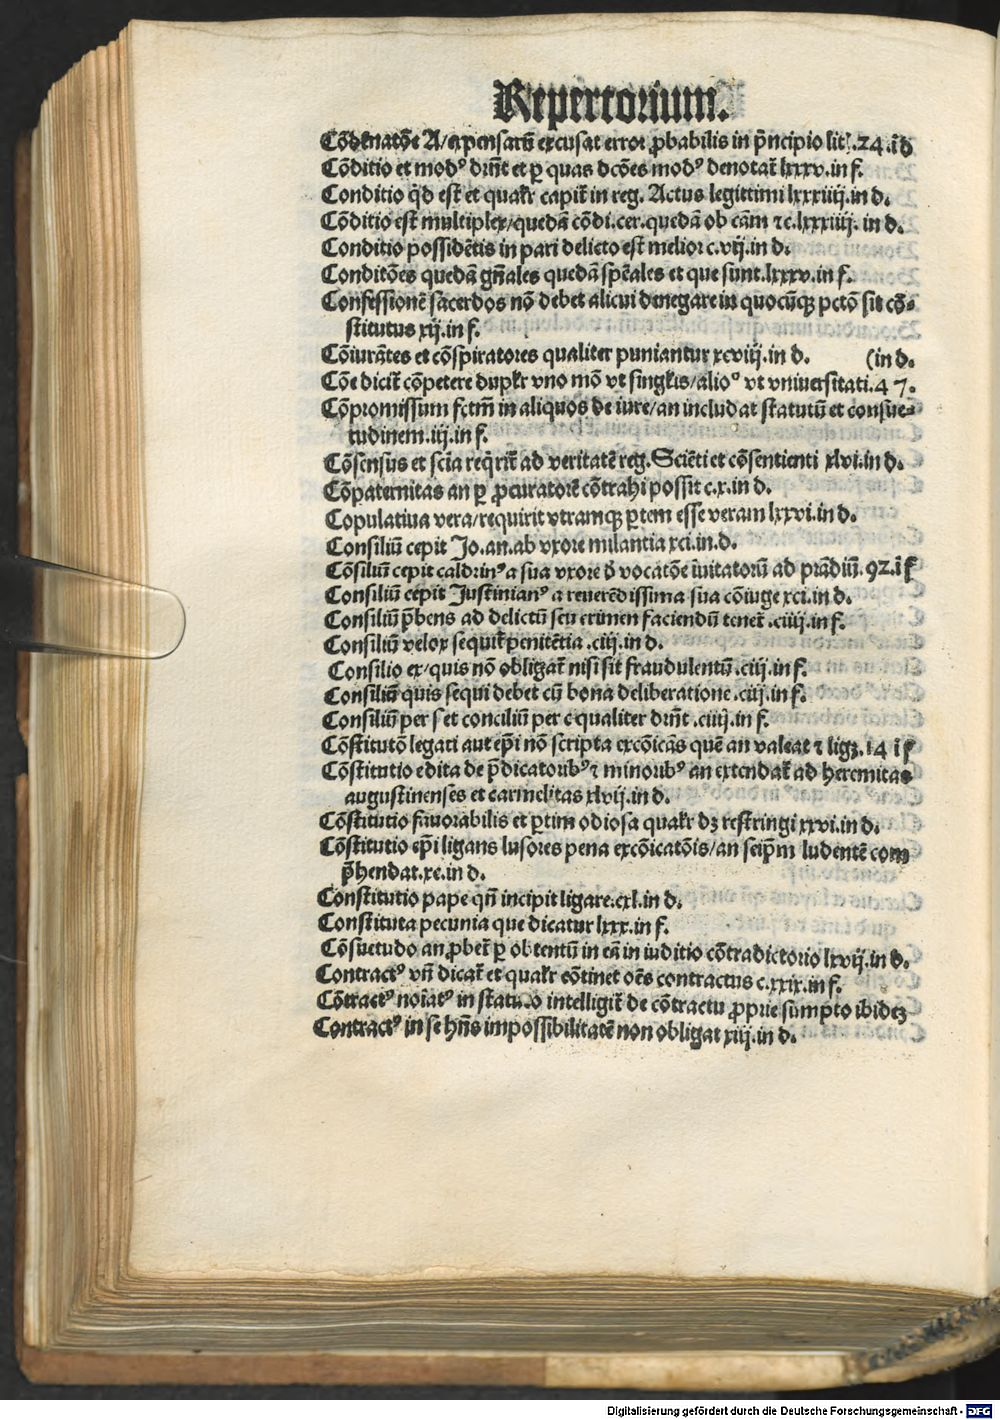 Repertorium.
Cōdēnatōe A/expensarū excusat error ꝓbabilis in pͥncipio lit̉.24.ī d
Cōditio et modꝰ dr̄nt et ꝑ quas dcōes modꝰ denotat̉ lxxxv.in f.
Conditio qͥd est et qualr̄ capit̉ in reg. Actus legittimi lxxxiiij.in d.
Cōditio est multiplex/quedā cōdi.cer.quedā ob cām ⁊c.lxxxiiij. in d.
Conditio possidētis in pari delicto est melior c.vij.in d.
Conditōes quedā gn̄ales quedā sp̄ēales et que sunt.lxxxv.in f.
Confessionē sacerdos nō debet alicui denegare in quocūqꝫ pctō sit cō-
stitutus xij.in f.
Cōiurātes et cōspiratores qualiter puniantur xcviij.in d.
(in d.
Cōe dicit̉ cōpetere duplr̄ vno mō vt singlis/alioꝰ vt vniuersitati.47.
Cōpromissum fctm̄ in aliquos de iure/an includat statutū et consue-
tudinem.iij.in f.
Cōsensus et scīa reqͥrit̉ ad veritatē reg.Sciēti et cōsentienti xlvi.in d.
Cōpaternitas an ꝑ ꝓcuratorē cōtrahi possit c.x.in d.
Copulatiua vera/requirit vtramqꝫ ꝑtem esse veram lxxvi.in d.
Consiliū cepit Jo.an.ab vxore milantia xci.in.d.
Cōsiliū cepit caldrinꝰ a sua vxore ꝺ̄ vocatōe īuitatorū ad prādiū.92.ī f
Consiliū cepit Justinianꝰ a reuerēdissima sua cōiuge xci.in d.
Consiliū p̄bens ad delictū seu crimen faciendū tenet̉ .ciiij.in f.
Consiliū velox sequit̉ penitētia .ciij.in d.
Consilio ex/quis nō obligat̉ nisi sit fraudulentū.ciij.in f.
Consiliū quis sequi debet cū bona deliberatione.ciij.in f.
Consiliū per s et conciliū per c qualiter dr̄nt .ciiij.in f.
Cōstitutō legati aut ep̄i nō scripta excōicās quē an valeat ⁊ ligꝫ.14 ī f
Cōstitutio edita de p̄dicatoribꝰ ⁊ minoribꝰ an extendat̉ ad heremitas
augustinenses et carmelitas xlvij.in d.
Cōstitutio fauorabilis et ꝑtim odiosa qualr̄ dꝫ restringi xxvi.in d.
Cōstitutio ep̄i ligans lusores pena excōicatōis/an seip̄m ludentē com
p̄hendat.xc.in d.
Constitutio pape qn̄ incipit ligare.cxl.in d.
Constituta pecunia que dicatur lxxx.in f.
Cōsuetudo an ꝓbet̉ ꝑ obtentū in eā in iuditio cōtradictorio lxvij.in d.
Contractꝰ vn̄ dicat̉ et qualr̄ cōtinet oēs contractus c.xxix.in f.
Cōtractꝰ noīatꝰ in statuto intelligit̉ de cōtractu ꝓprie sumpto ibideꝫ
Contractꝰ in se hn̄s impossibilitatē non obligat xiij.in d.
Digitalisierung gefördert durch die Deutsche Forschungsgemeinschaft - DFG